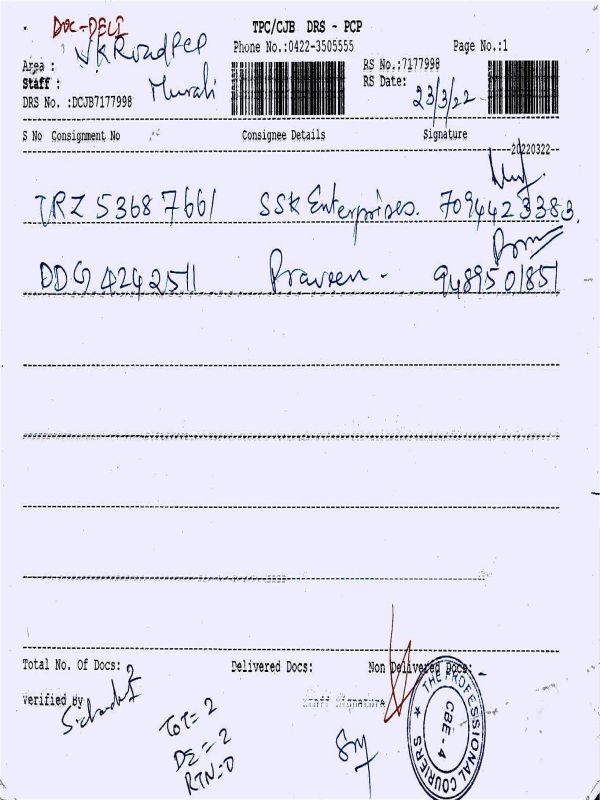 DOC-DELI
TPC/CJB DRS - PCP
VKRoadPCP
Phone No.:0422-3505555
Page No.:1
Area :
RS No.:7177998
Staff :
Murali
RS Date:
23/3/22
DRS No. :DCJB7177998
S No Consignment No Consignee Details Signature
20220322
TRZ 53687661 SSK Enterprises. 7094423383.
DDG 4242511 Praveen - 9489501851
Total No. Of Docs: 2 Delivered Docs: Non Delivered Docs:
Verified By
Staff Signature
TOT= 2
DE = 2
RTN=0
THE PROFESSIONAL COURIERS
CBE - 4